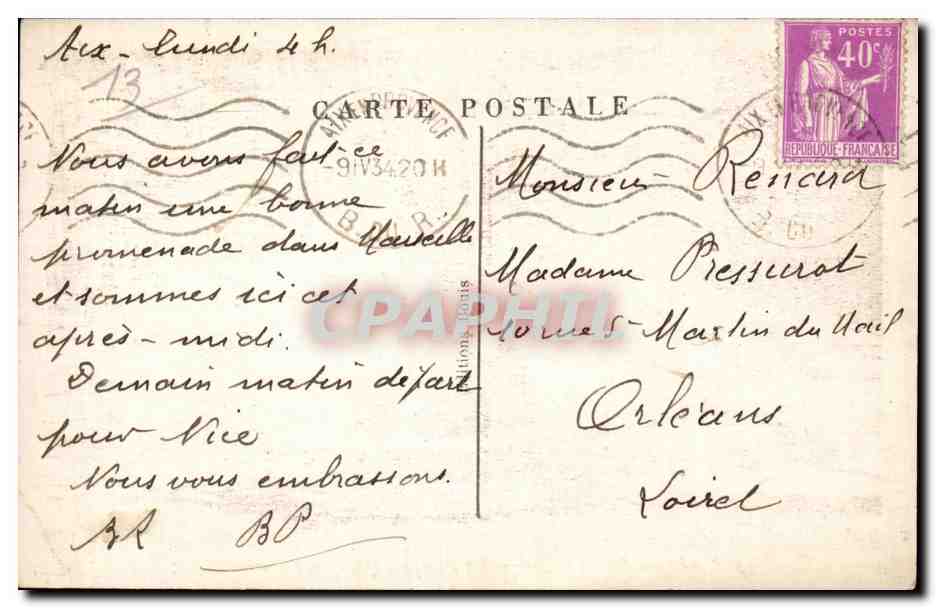 Aix - lundi 4 h.
13
CARTE POSTALE
POSTES
40c
REPUBLIQUE-FRANCAISE
AIX EN PROVENCE
-9 IV 34 20 H
B. DU R.
Nous avons fait ce
matin une bonne
promenade dans Marseille
et sommes ici cet
après-midi.
Demain matin départ
pour Nice
Nous vous embrassons.
BR BP
Editions Rouis
CPAPHIL
Monsieur Renard
Madame Pressurot
10 rue St Martin du Mail
Orléans
Loiret